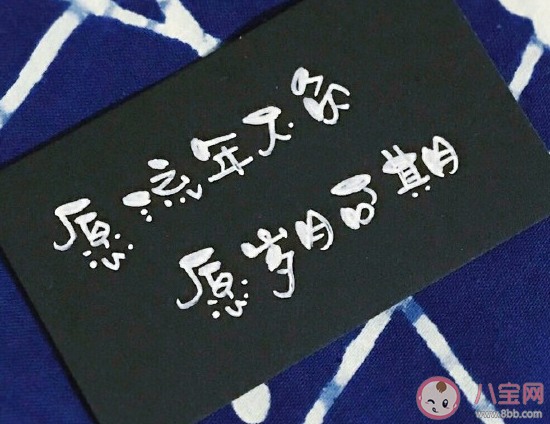 愿流年不负
愿岁月可期
八宝网
www.8bb.com